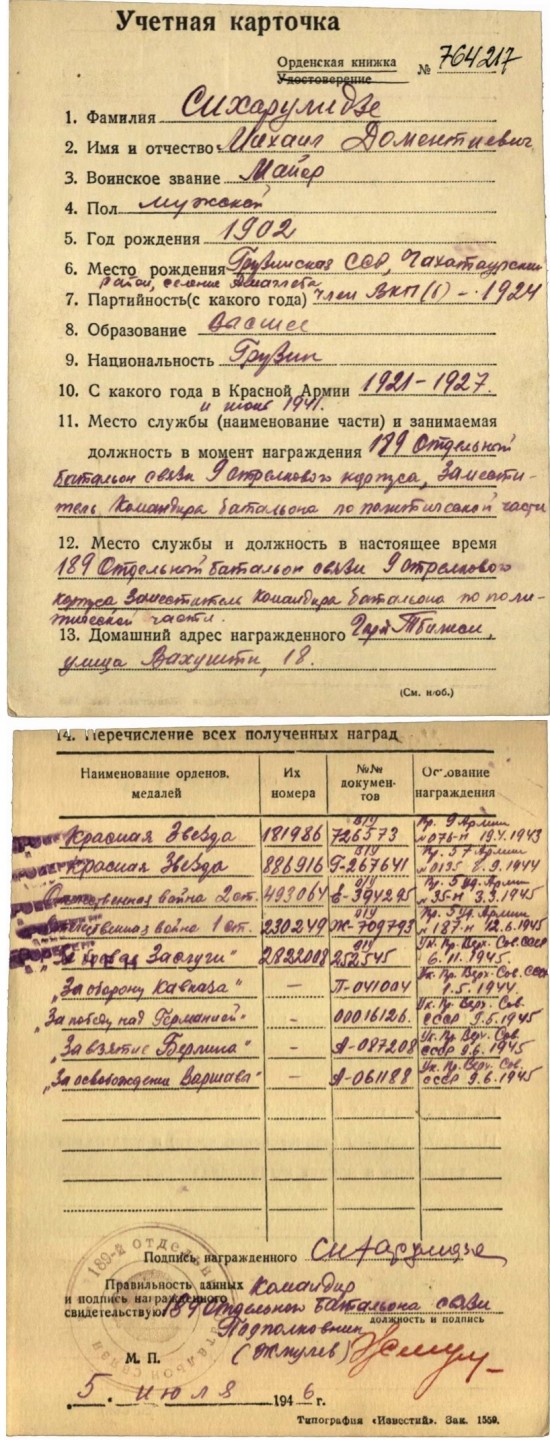 Учетная карточка
Орденская книжка
Удостоверение № 764217
1. Фамилия Сихарулидзе
2. Имя и отчество Михаил Доментиевич
3. Воинское звание Майор
4. Пол мужской
5. Год рождения 1902
6. Место рождения Грузинская ССР, Чахатаурский
район, селение Амаглеба
7. Партийность (с какого года) член ВКП(б) - 1924
8. Образование высшее
9. Национальность Грузин
10. С какого года в Красной Армии 1921-1927.
и июнь 1941.
11. Место службы (наименование части) и занимаемая
должность в момент награждения 189 Отдельный
батальон связи 9 стрелкового корпуса, Замести-
тель Командира батальона по политической части
12. Место службы и должность в настоящее время
189 Отдельный батальон связи 9 стрелкового
корпуса Заместитель Командира батальона по поли-
тической части.
13. Домашний адрес награжденного Гор. Тбилиси,
улица Вахушти, 18.
(См. н/об.)
14. Перечисление всех полученных наград
Наименование орденов, медалей Их номера №№ документов Основание награждения
Красная Звезда 181986 726573 Пр. 9 Армии
№ 076-н 19.4.1943
Красная Звезда 886916 Г-267641 Пр. 57 Армии
№ 0135 2.9.1944
Отечественная война 2 ст. 493064 Е-394295 Пр. 5 уд. Армии
№ 35-н 3.3.1945
Отечественная война 1 ст. 230249 Ж-709793 Пр. 5 уд. Армии
№ 187-н 12.6.1945
"За боевые Заслуги" 2822008 252545 Ук. Пр. Верх. Сов. СССР
6.11.1945.
"За оборону Кавказа" — П-041004 Ук. Пр. Верх. Сов. СССР
1.5.1944.
"За победу над Германией" — 00016126 Ук. Пр. Верх. Сов.
СССР 9.5.1945
"За взятие Берлина" — А-087208 Ук. Пр. Верх. Сов.
СССР 9.6.1945
"За освобождение Варшава" — А-061188 Ук. Пр. Верх. Сов.
СССР 9.6.1945
Подпись награжденного Сихарулидзе
Правильность данных
и подпись награжденного
свидетельствую Командир
189 Отдельного батальона связи
должность и подпись
Подполковник
(Жмулев)
М. П.
5 июля 1946 г.
Типография «Известий». Зак. 1559.